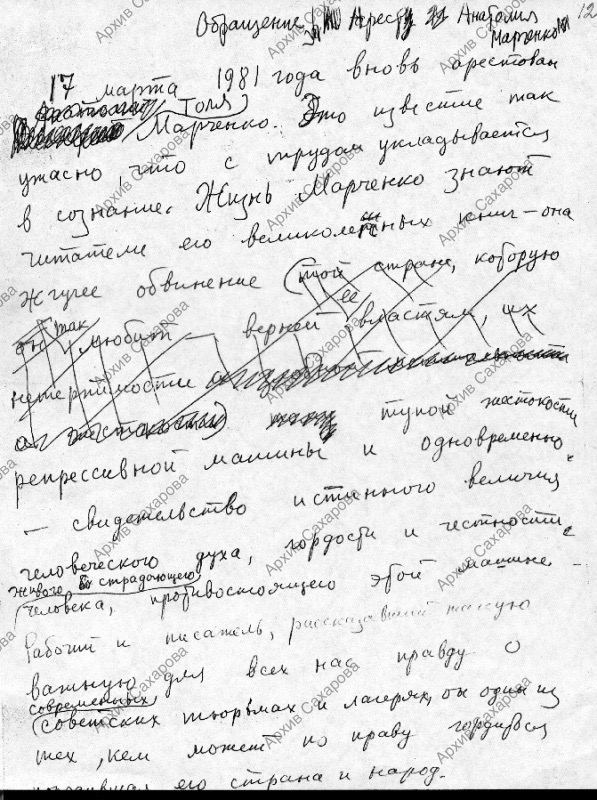 12
Обращение Арест Анатолия
Марченко
17 марта 1981 года вновь арестован
Толя
Марченко. Это известие так
ужасно, что с трудом укладывается
в сознание. Жизнь Марченко знают
читатели его великолепных книг – она
жгучее обвинение той стране, которую
он так любит – верной ее властям, их
нетерпимости
а жестокости тупой жестокости
репрессивной машины и одновременно
– свидетельство истинного величия
человеческого духа, гордости и честности
живого страдающего
человека, противостоящего этой машине. –
Рабочий и писатель, рассказавший такую
важную для всех нас правду о
современных
советских тюрьмах и лагерях, он один из
тех, кем может по праву гордиться
его страна и народ.
Архив Сахарова